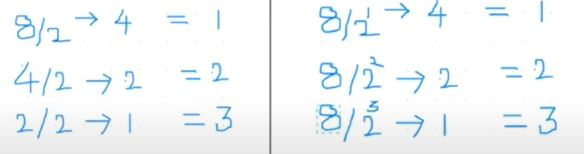 8/2 → 4 = 1
4/2 → 2 = 2
2/2 → 1 = 3
8/2¹ → 4 = 1
8/2² → 2 = 2
8/2³ → 1 = 3